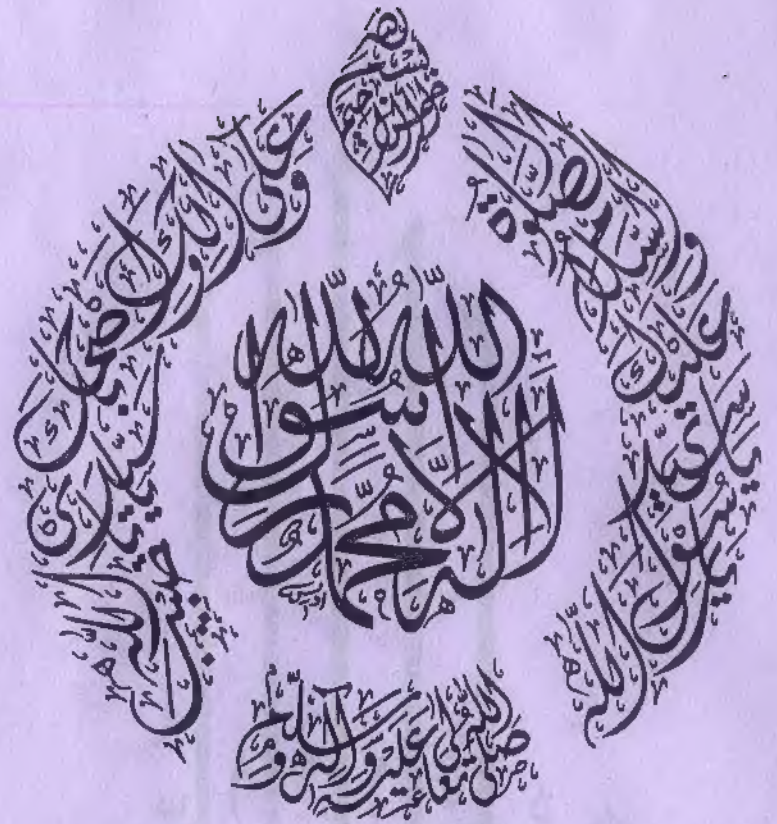 بسم الله الرحمن الرحيم
الصلوة والسلام عليك يا سيدي يا رسول الله
وعلى آلك واصحابك يا سيدي يا حبيب الله
لا اله الا الله محمد رسول الله
صلى الله تعالى عليه وآله وسلم